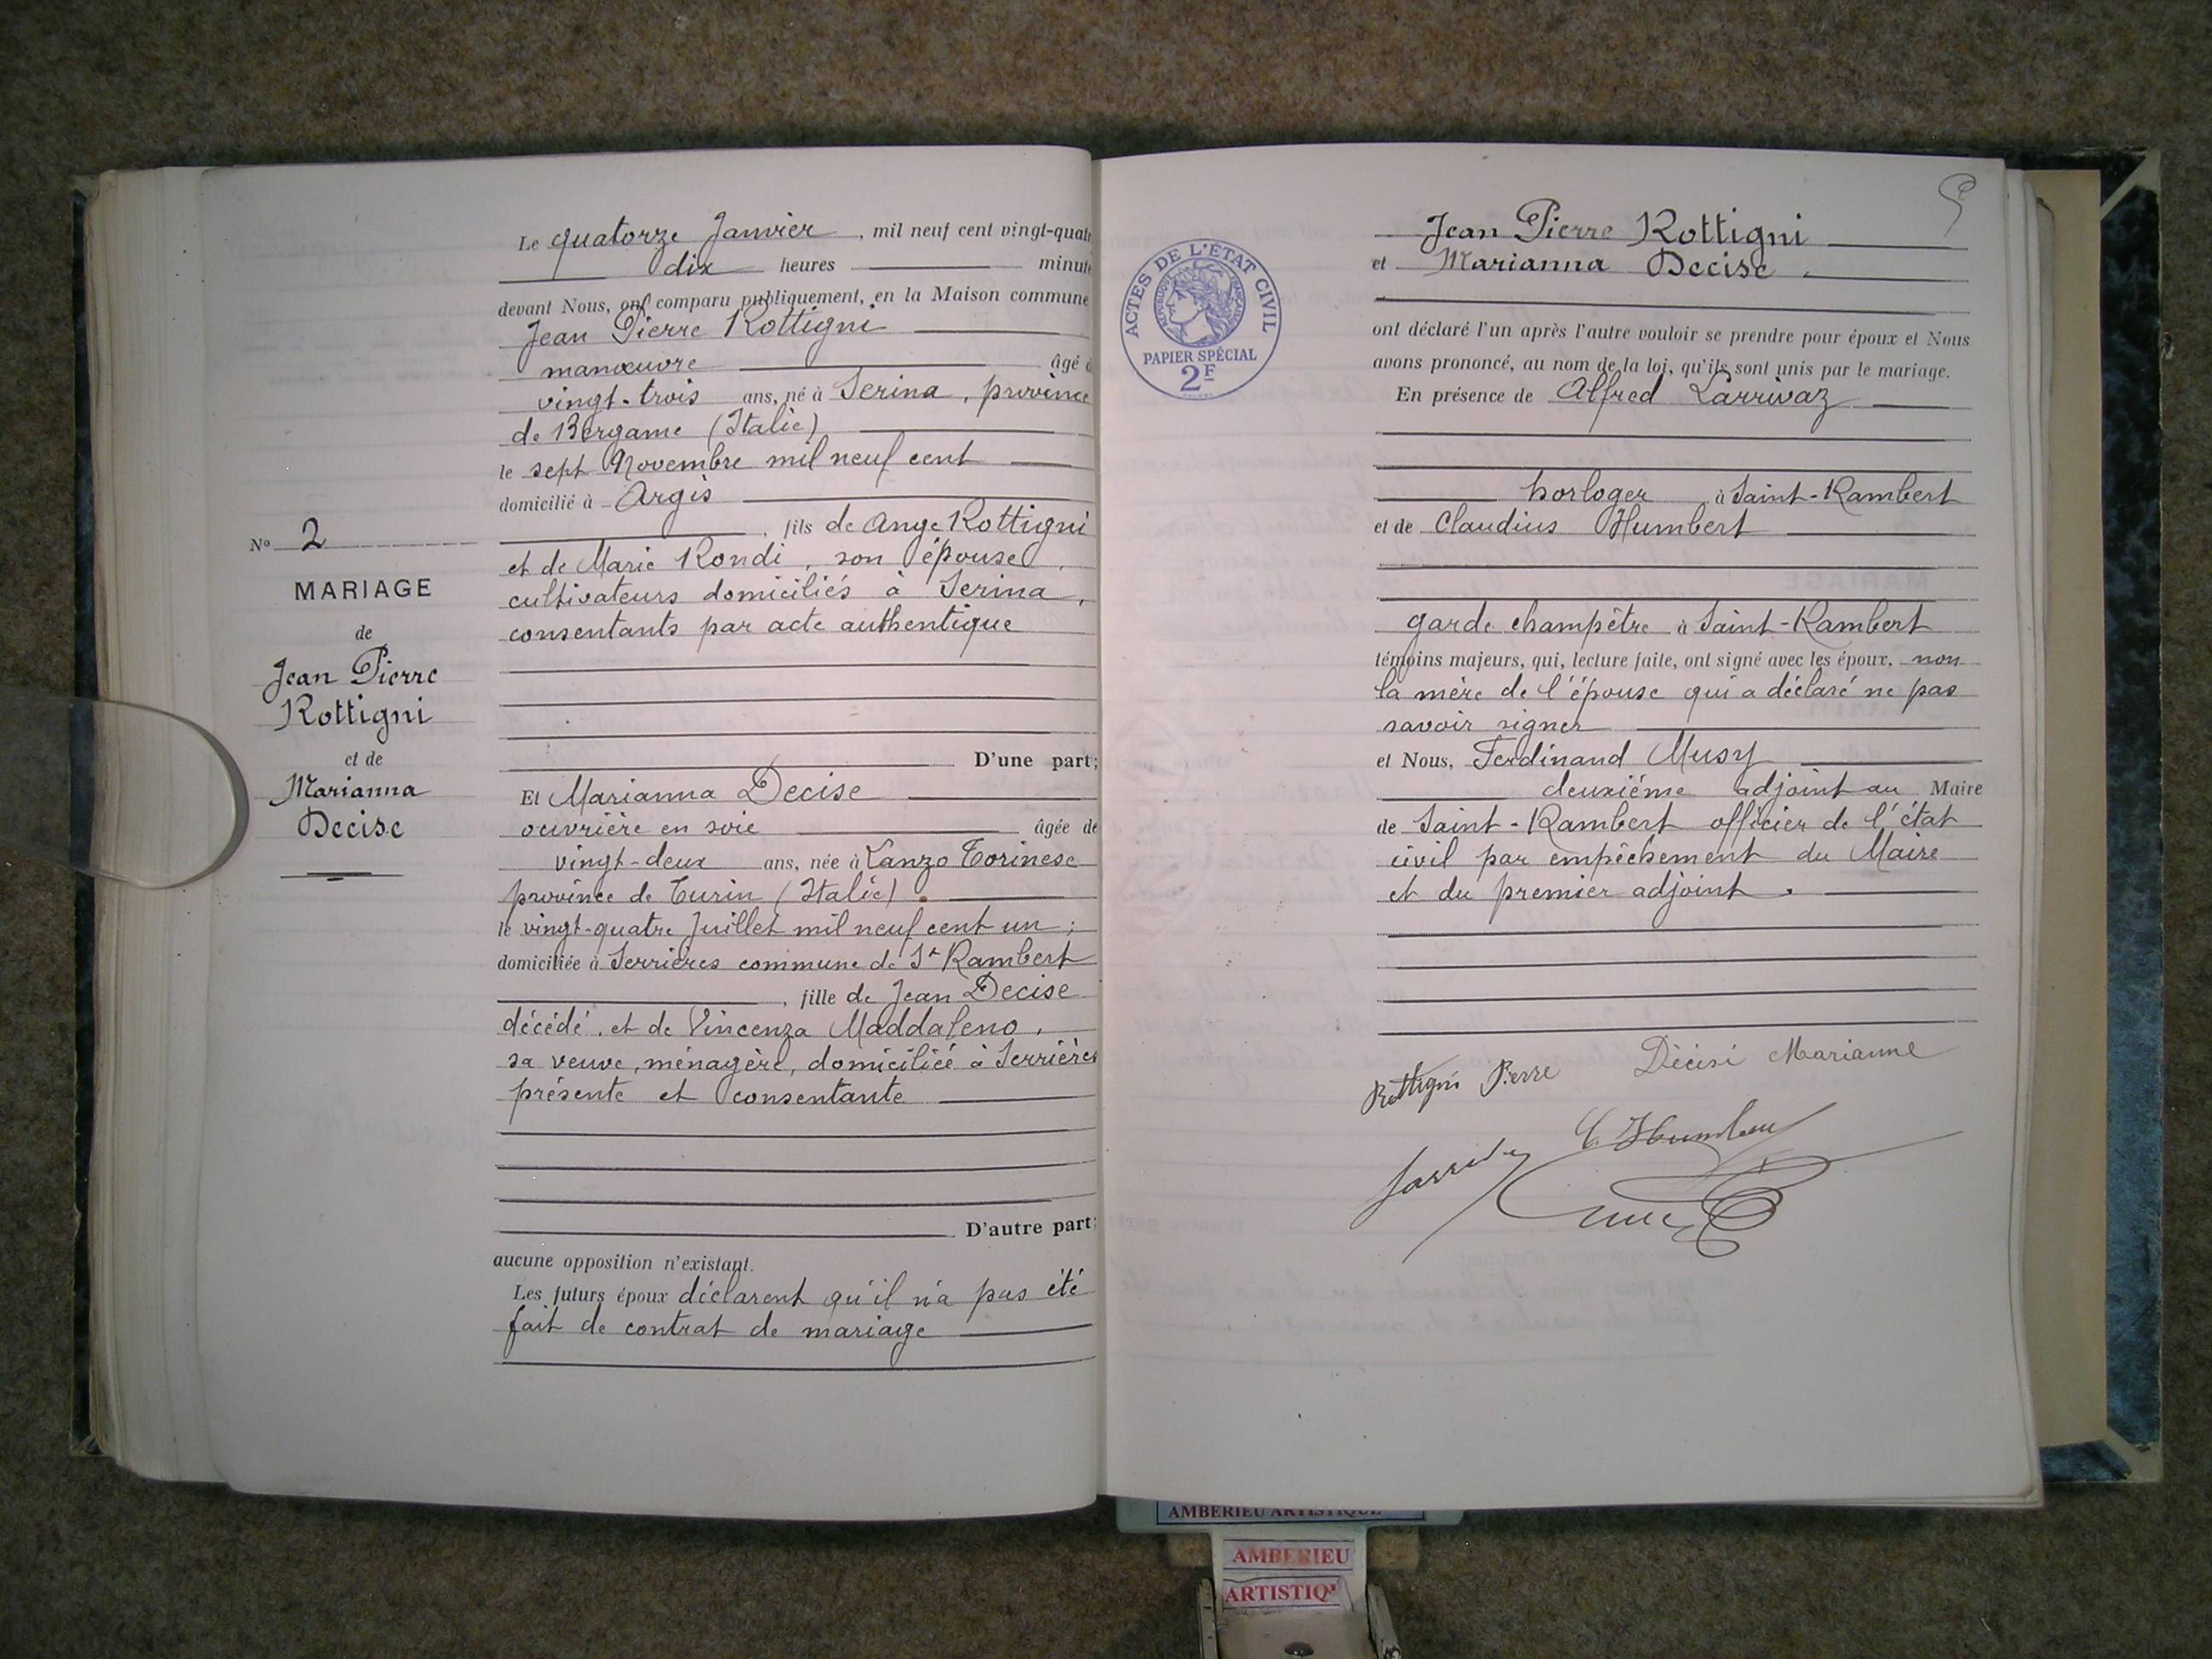 Le quatorze Janvier, mil neuf cent vingt-quatr
dix heures minute
devant Nous, ont comparu publiquement, en la Maison commune
Jean Pierre Rottigni
manœuvre âgé d
vingt-trois ans, né à Serina, province
de Bergame (Italie)
le sept Novembre mil neuf cent
domicilié à Argis
, fils de Ange Rottigni
et de Marie Rondi, son épouse,
cultivateurs domiciliés à Serina,
consentants par acte authentique
D'une part;
Et Marianna Decise
ouvrière en soie âgée de
vingt-deux ans, née à Lanzo Torinese
province de Turin (Italie).
le vingt-quatre Juillet mil neuf cent un;
domiciliée à Serrières commune de St Rambert
, fille de Jean Decise
décédé, et de Vincenza Maddaleno,
sa veuve, ménagère, domiciliée à Serrières
présente et consentante
D'autre part;
aucune opposition n'existant.
Les futurs époux déclarent qu'il n'a pas été
fait de contrat de mariage
No 2
MARIAGE
de
Jean Pierre
Rottigni
et de
Marianna
Decise
ACTES DE L'ÉTAT CIVIL
RÉPUBLIQUE FRANÇAISE
PAPIER SPÉCIAL
2F
5
Jean Pierre Rottigni
et Marianna Decise.
ont déclaré l'un après l'autre vouloir se prendre pour époux et Nous
avons prononcé, au nom de la loi, qu'ils sont unis par le mariage.
En présence de Alfred Larrivaz
horloger à Saint-Rambert
et de Claudius Humbert
garde champêtre à Saint-Rambert
témoins majeurs, qui, lecture faite, ont signé avec les époux, non
la mère de l'épouse qui a déclaré ne pas
savoir signer
et Nous, Ferdinand Musy
deuxième adjoint au Maire
de Saint-Rambert officier de l'état
civil par empêchement du Maire
et du premier adjoint.
Rottigni Pierre Décisi Marianne
C. Humbert
AMBERIEU ARTISTIQUE
AMBERIEU
ARTISTIQ